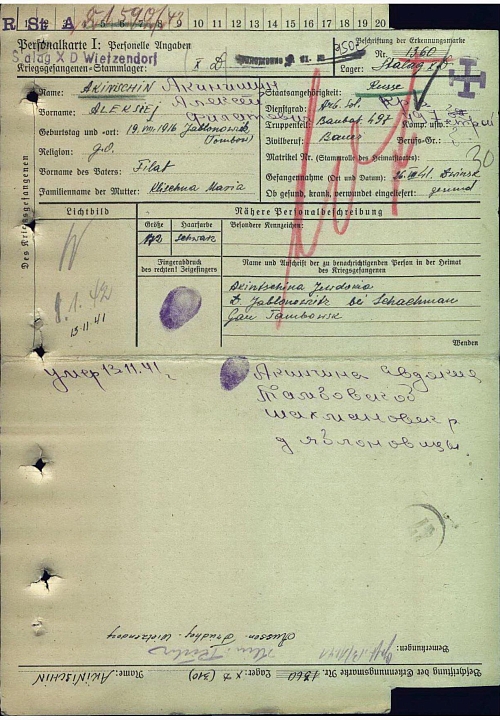 R St A
1 2 3 4 5 6 7 8 9 10 11 12 13 14 15 16 17 18 19 20
Personalkarte I: Personelle Angaben
Beschriftung der Erkennungsmarke
Stalag X D Wietzendorf
Nr. 1360
Kriegsgefangenen-Stammlager: X D
Lager: Stalag X D
Des Kriegsgefangenen
Name: AKINTSCHIN Акиншин
Staatsangehörigkeit: Russe
Vorname: ALEKSEJ Алексей
Dienstgrad:
Truppenteil: Baubat 497 Komp. usw.:
Geburtstag und -ort: 19.VIII.1916 Jablonowitz
Tambow
Zivilberuf: Bauer Berufs-Gr.:
Religion: g.o.
Matrikel Nr. (Stammrolle des Heimatstaates):
30
Vorname des Vaters: Filat
Gefangennahme (Ort und Datum): Dwinsk
Familienname der Mutter: Maria
Ob gesund, krank, verwundet eingeliefert: gesund
Lichtbild
Nähere Personalbeschreibung
Größe Haarfarbe Besondere Kennzeichen:
172 schwarz
Fingerabdruck
des rechten! Zeigefingers
Name und Anschrift der zu benachrichtigenden Person in der Heimat
des Kriegsgefangenen
8.1.42
13.11.41
Akintschina Jewdokia
D. Jablonowitz bei Schachman
Gau Tambowsk
Wenden
умер 13.11.41.
Акиншина Авдокия
Тамбовской
шахмановск р
д яблоновицы.
Russen Friedhof Wietzendorf
Bemerkungen:
Beschriftung der Erkennungsmarke Nr. 1360 Lager: X D (310) Name: AKINTSCHIN